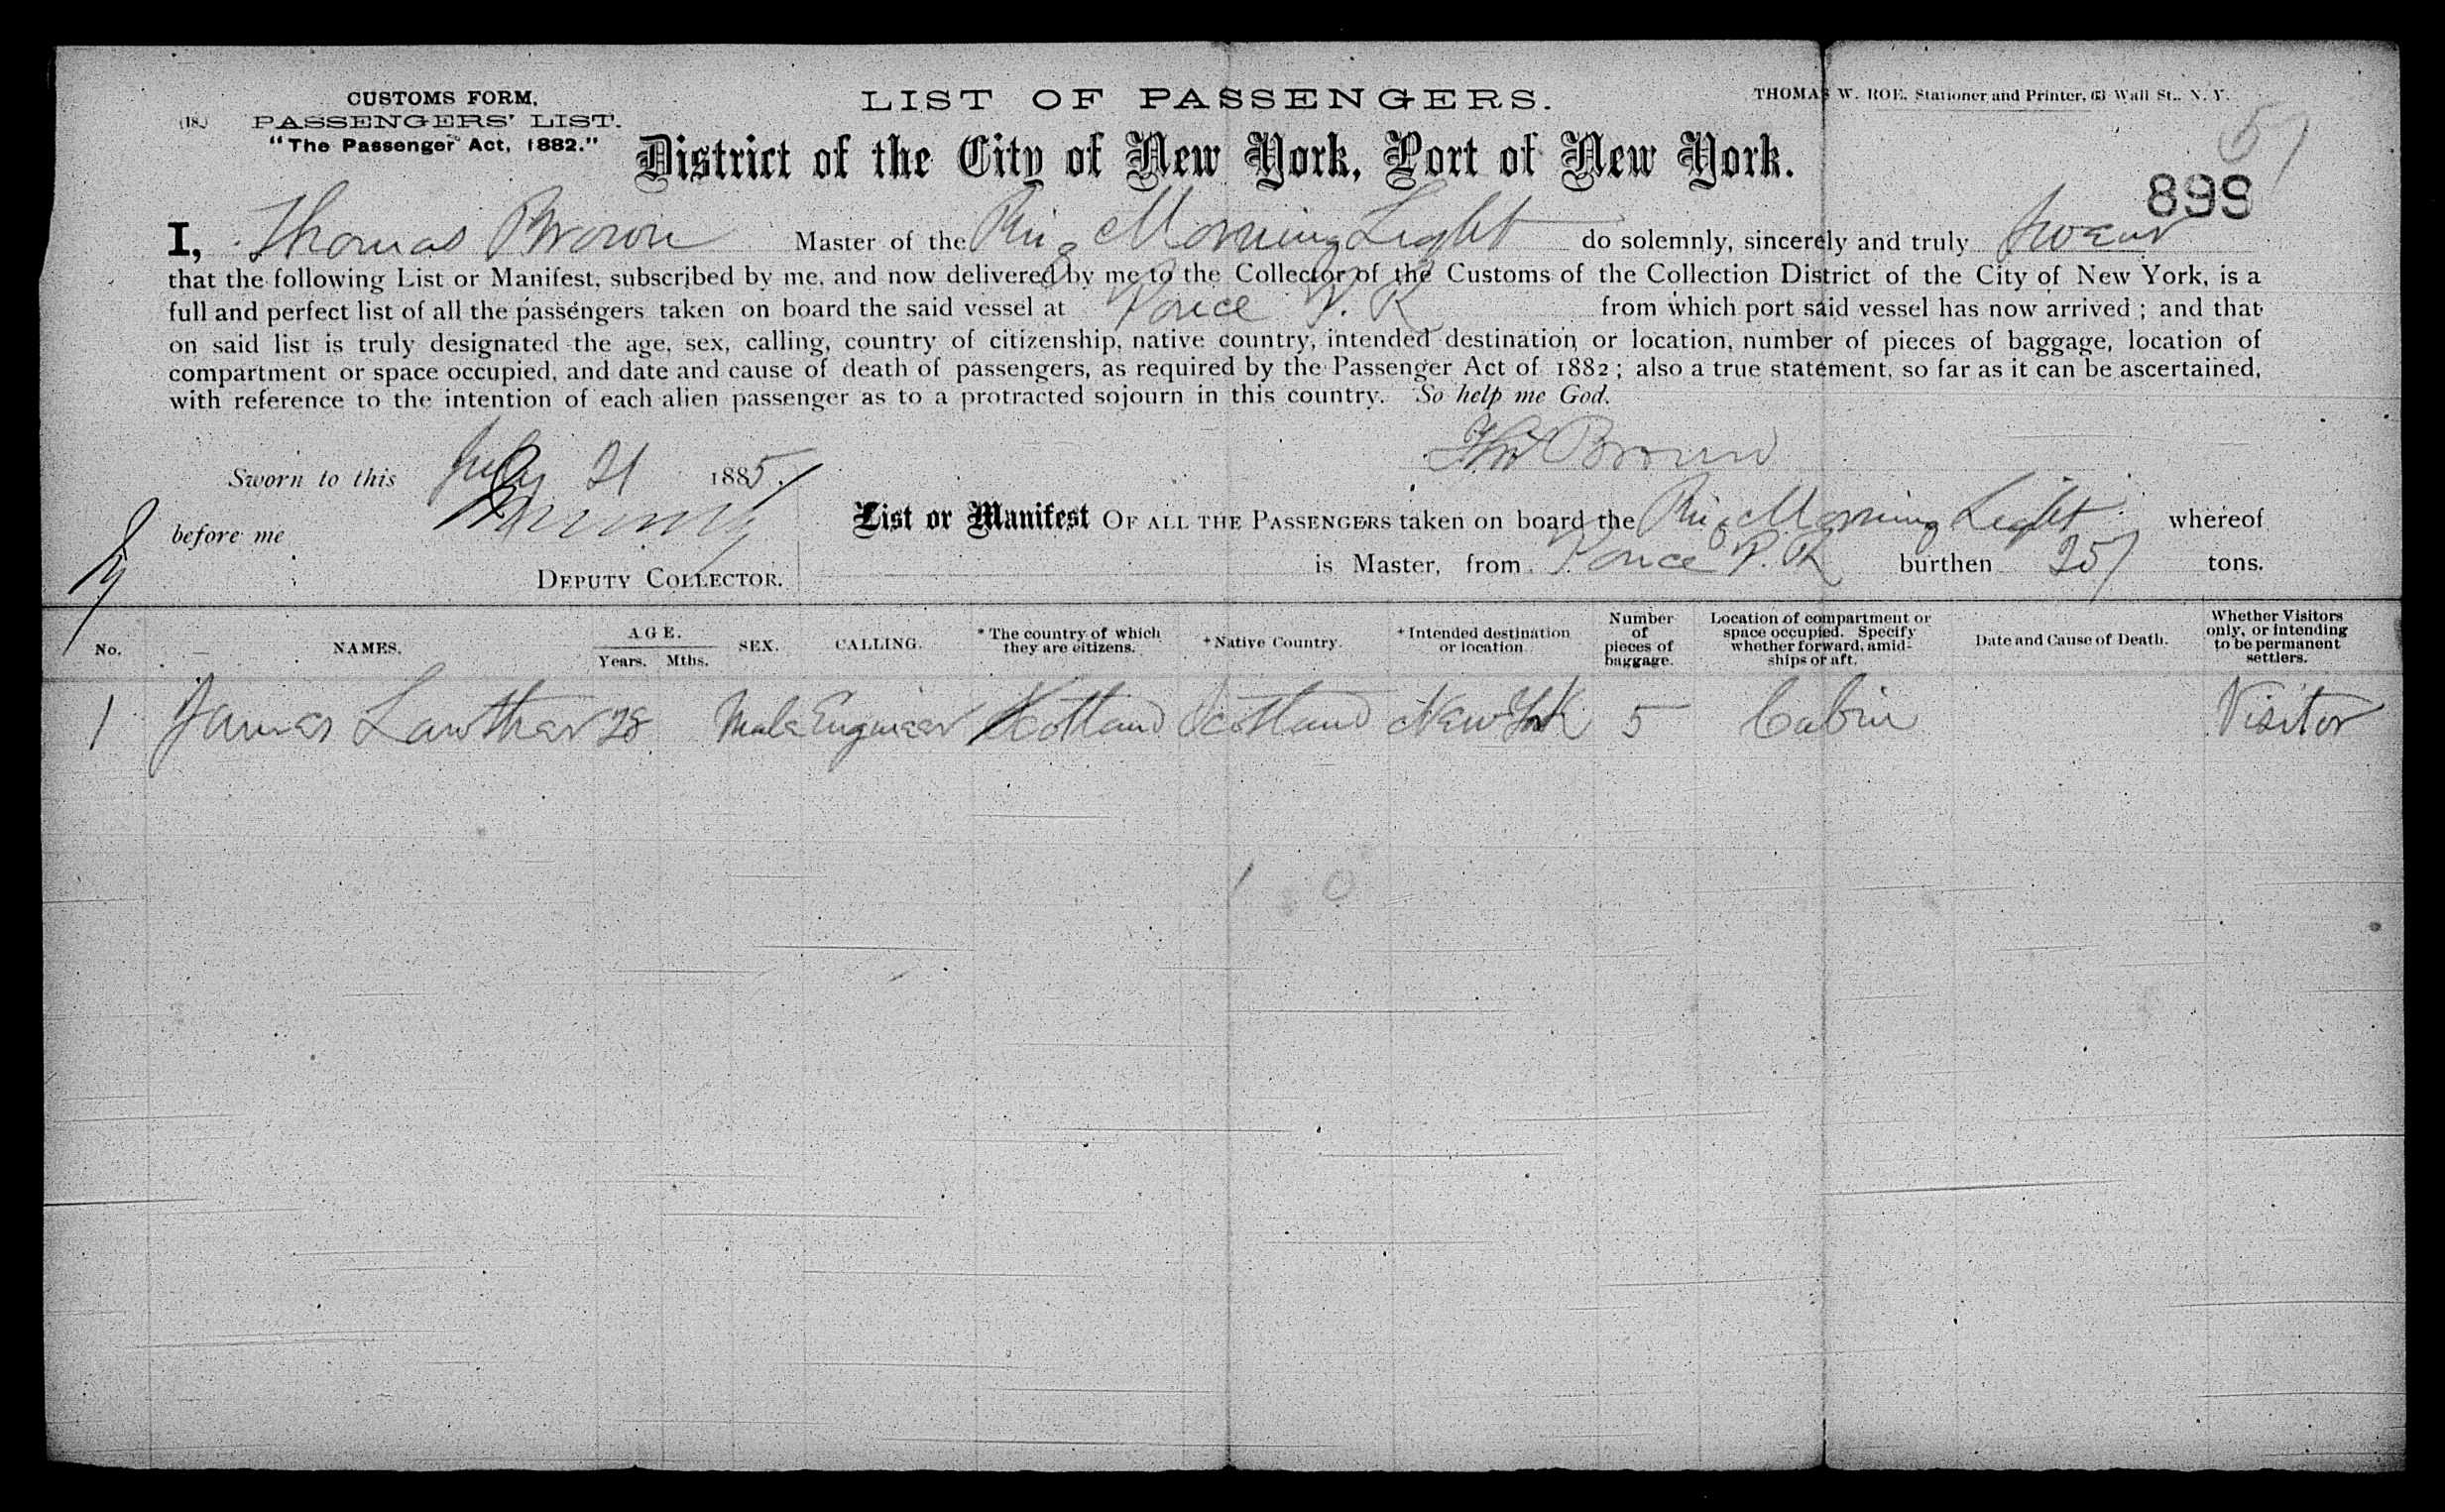 CUSTOMS FORM.
(18.) PASSENGERS' LIST.
"The Passenger Act, 1882."
LIST OF PASSENGERS.
THOMAS W. ROE, Stationer and Printer, 63 Wall St., N. Y.
District of the City of New York, Port of New York.
899
I, Thomas Brown Master of the Brig Morning Light do solemnly, sincerely and truly swear
that the following List or Manifest, subscribed by me, and now delivered by me to the Collector of the Customs of the Collection District of the City of New York, is a
full and perfect list of all the passengers taken on board the said vessel at Ponce P. R from which port said vessel has now arrived ; and that
on said list is truly designated the age, sex, calling, country of citizenship, native country, intended destination or location, number of pieces of baggage, location of
compartment or space occupied, and date and cause of death of passengers, as required by the Passenger Act of 1882 ; also a true statement, so far as it can be ascertained,
with reference to the intention of each alien passenger as to a protracted sojourn in this country. So help me God.
Thos Brown
Sworn to this July 21 1885.
before me
DEPUTY COLLECTOR.
List or Manifest OF ALL THE PASSENGERS taken on board the Brig Morning Light whereof
is Master, from Ponce P. R burthen 257 tons.
No. NAMES. AGE. Years. Mths. SEX. CALLING. * The country of which they are citizens. + Native Country. + Intended destination or location Number of pieces of baggage. Location of compartment or space occupied. Specify whether forward, amidships or aft. Date and Cause of Death. Whether Visitors only, or intending to be permanent settlers.
1 James Lawther 28 Male Engineer Scotland Scotland New York 5 Cabin Visitor